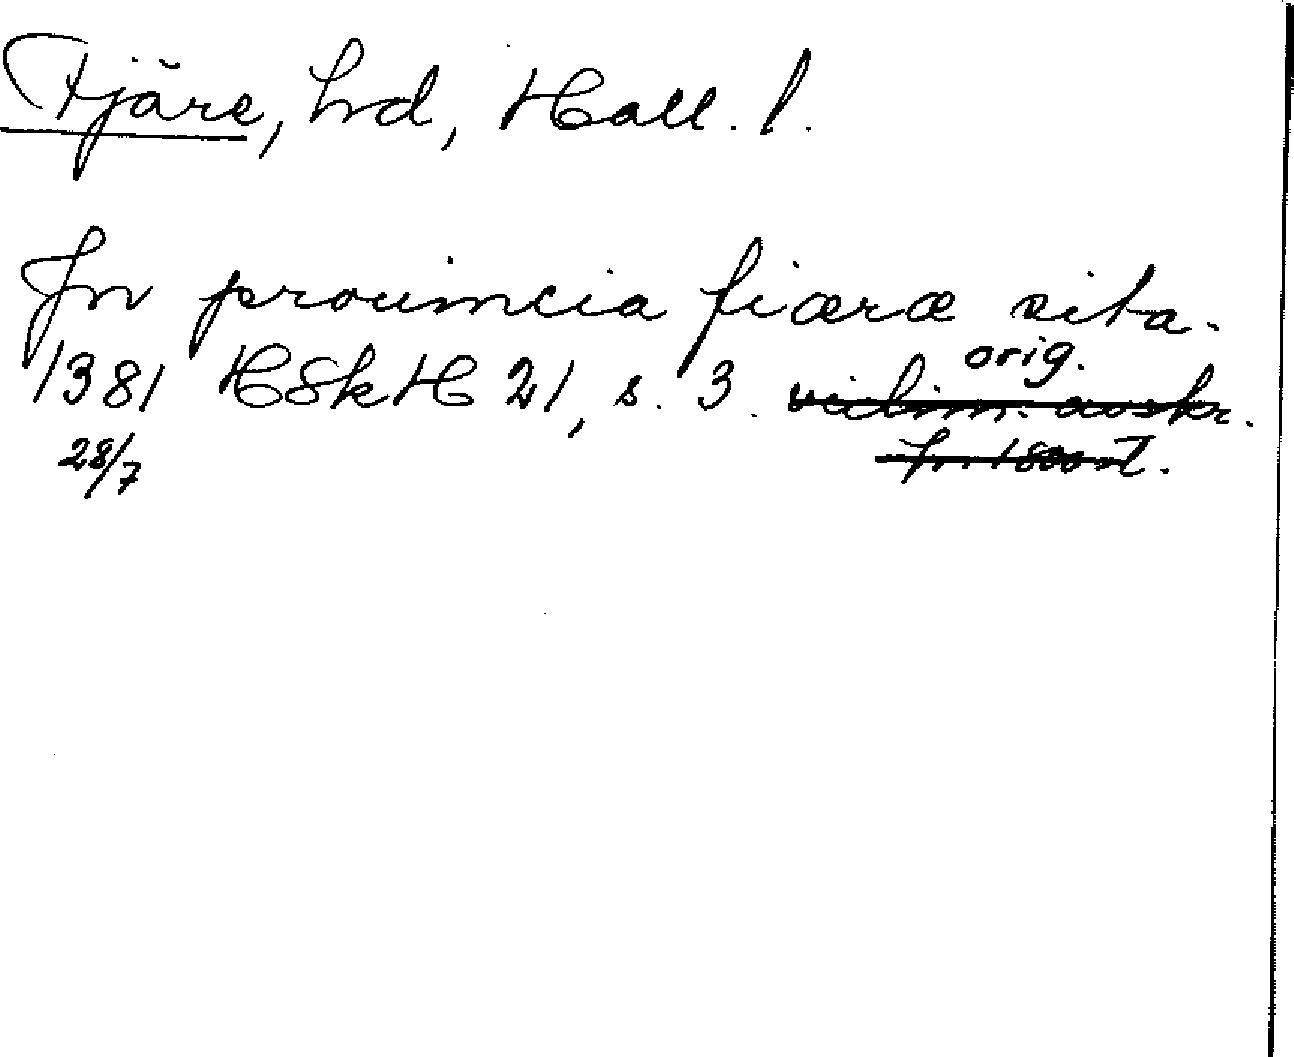 Fjäre, hd, Hall. l.
In prouincia fiæræ sita.
orig.
1381 HSkH 21, s. 3. vidim. avskr.
28/7 fr. 1800-t.